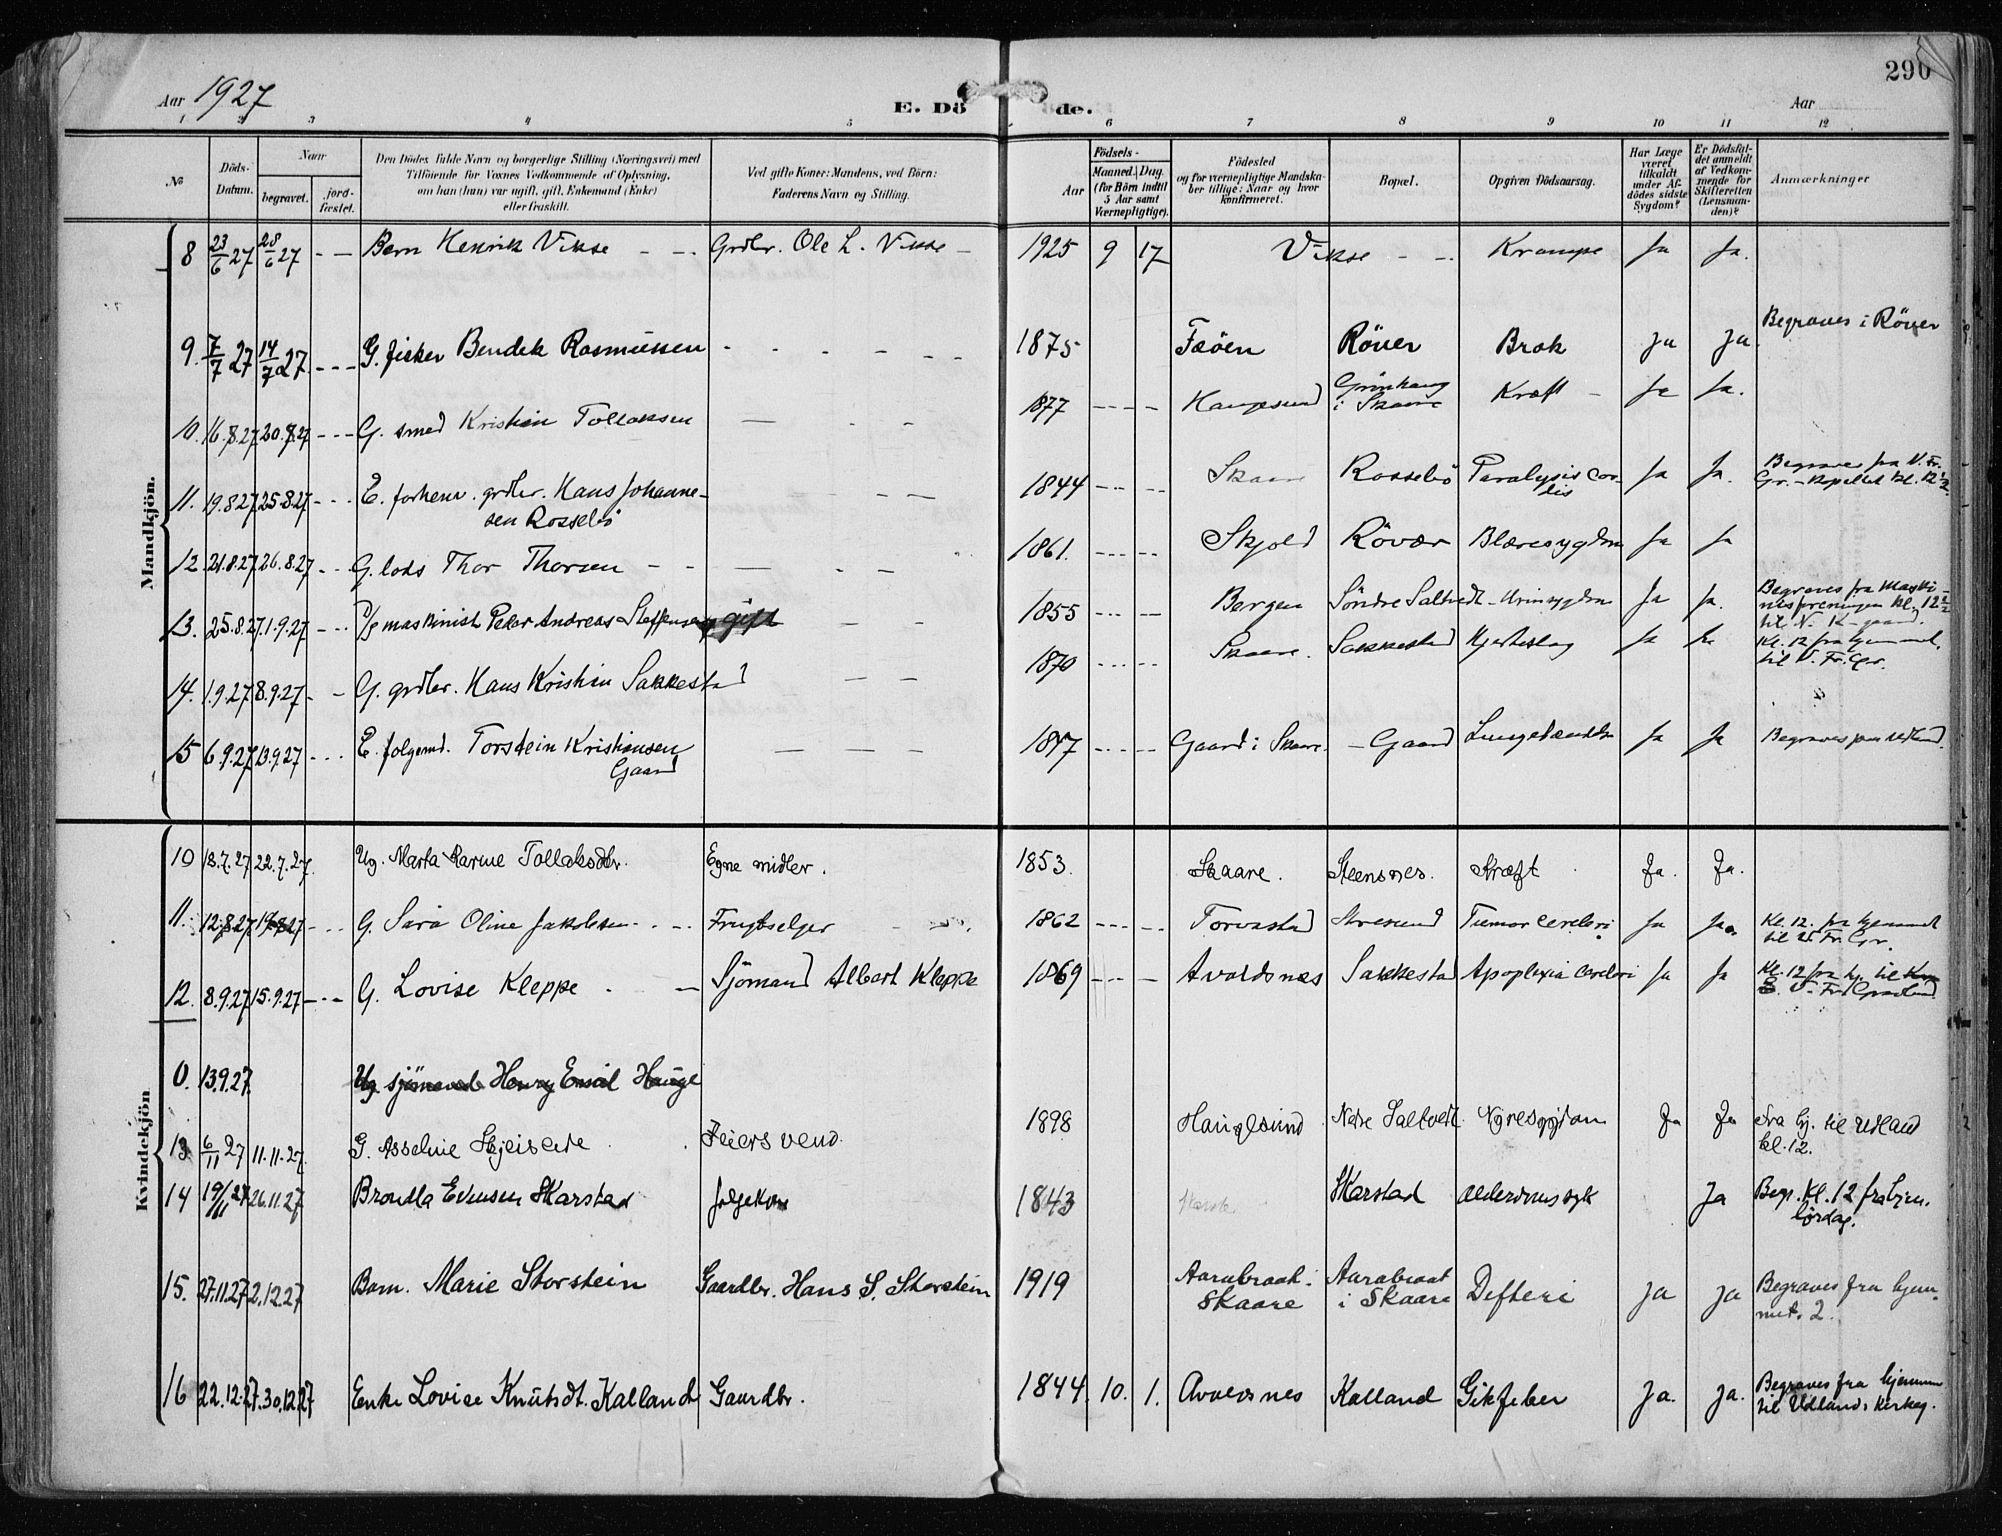 290
Aar 1927
E. Döde.
Aar
1 2 3 4 5 6 7 8 9 10 11 12
No
Döds-Datum.
Naar
begravet.
jordfæstet.
Den Dödes fulde Navn og borgerlige Stilling (Næringsvei) med
Tilföiende for Voxnes Vedkommende af Oplysning,
om han (hun) var ugift, gift, Enkemand (Enke)
eller fraskilt.
Ved gifte Koner: Mandens, ved Börn:
Faderens Navn og Stilling.
Födsels-
Aar
Maaned. Dag.
(for Börn indtil 5 Aar samt Værnepligtige).
Födested
og for værnepligtige Mandskaber tillige: Naar og hvor konfirmeret.
Bopæl.
Opgiven Dödsaarsag.
Har Læge været tilkaldt under Afdödes sidste Sygdom?
Er Dödsfaldet anmeldt af Vedkommende for Skifteretten (Lensmanden)?
Anmærkninger
Mandkjön.
8 23/6 27 28/6 27 - - Barn Henrik Vikse - - Grdbr. Ole L. Vikse - 1925 9 17 Vikse - - Krampe Ja Ja.
9. 7/7 27 14/7 27. - - - G. fisker Bendik Rasmussen - - - - - 1875 Fæöen Röver Brok Ja Ja Begraves i Röver
10. 16.8.27 20.8.27 - - - G. smed Kristian Tollaksen - - - 1877 - - - - Haugesund Grönhaug i Skaare Kræft - Ja Ja.
11. 19.8.27 25.8.27 - - - E. forhenv. grdbr. Hans Johannesen Rossebö - - - 1844 - - - - Skaare Rossebö Paralysis cordis Ja Ja. Begraves fra V. Fr. Gr. - kapellet kl. 12 1/2.
12. 21.8.27 26.8.27 - - - G. lods Thor Thorsen - - - - - 1861. - - - - Skjold Rövær Blæresygdom Ja Ja
13. 25.8.27. 1.9.27 - - - maskinist Peder Andreas Steffensen gift - - 1855 - - - - Bergen Söndre Saltvedt - Urinsygdom Ja Ja. Begraves fra Maskinistforeningen kl. 12 til N. K-gaard.
14. 1.9.27 8.9.27 - - G. grdbr. Hans Kristian Sakkestad - - - 1870 - - - - Skaare. Sakkestad Hjerteslag Ja Ja Kl. 12 fra hjemmet til V. Fr. Gr.
15 6.9.27 13.9.27 - - - E. folgemd. Torstein Kristiansen Gaard - - - 1847 - - - - Gaard i Skaare. - Gaard Lungebetændelse Ja Ja Begraves paa Udland.
Kvindekjön
10 18.7.27 22.7.27. Ug. Marta Karine Tollaksdtr. Egne midler. 1853. Skaare. Steensnes. Kræft Ja. Ja.
11. 12.8.27 19.8.27 - - - G. Sara Oline Jakobsen - - Frugtselger 1862 - - - - Torvastad Stresund Tumor cerebri Ja Ja. Kl. 12. fra hjemmet til V. Fr. Gr.
12. 8.9.27 15.9.27 - - - G. Lovise Kleppe - - Sjömand Albert Kleppe 1869 - - - Avaldsnes Sakkestad Apoplexia cerebri Ja Ja Kl. 12 fra hj. til V. Fr. Gravlund
0. 13.9.27. Ug. sjömand Henry Emil Hauge
13. 6/11 27 11.11.27. G. Asseline Skjeisede Feiersvend. 1898 Haugesund Nedre Saltvedt Nyresygdom Ja Ja Fra hj. til Udland kl. 12.
14 19/11 27 26.11.27 Brondla Evensen Skarstad folgekone 1843 Skarstad Alderdomssyk Ja Begr. kl. 12 fra hjem. lördag.
15. 27.11.27 2.12.27 Barn. Marie Storstein Gaardbr. Hans S. Storstein 1919 Aarabraat. Skaare Aarabraat i Skaare Difteri Ja Ja Begraves fra hjemmet. 2.
16 22.12.27. 30.12.27 Enke Lovise Knutsdt. Kalland Gaardbr. 1844. 10. 1. Avaldsnes Kalland Gikfeber Ja. Ja. Begraves fra hjemmet til Udlands kirkeg.